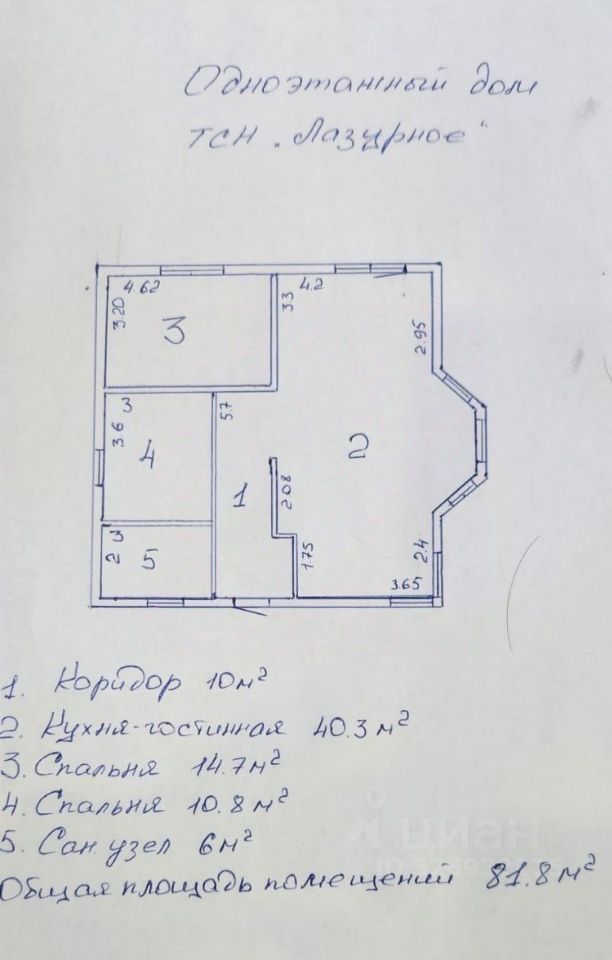 Одноэтажный дом
ТСН "Лазурное"
4.62
3.20
3
33
4.2
2.95
3
3.6
4
5.7
1
2.08
2
3
2
5
1.75
2.4
3.65
1. Коридор 10м²
2. Кухня-гостинная 40.3 м²
3. Спальня 14.7м²
4. Спальня 10.8 м²
5. Сан. узел 6м²
Общая площадь помещений 81.8м²
циан